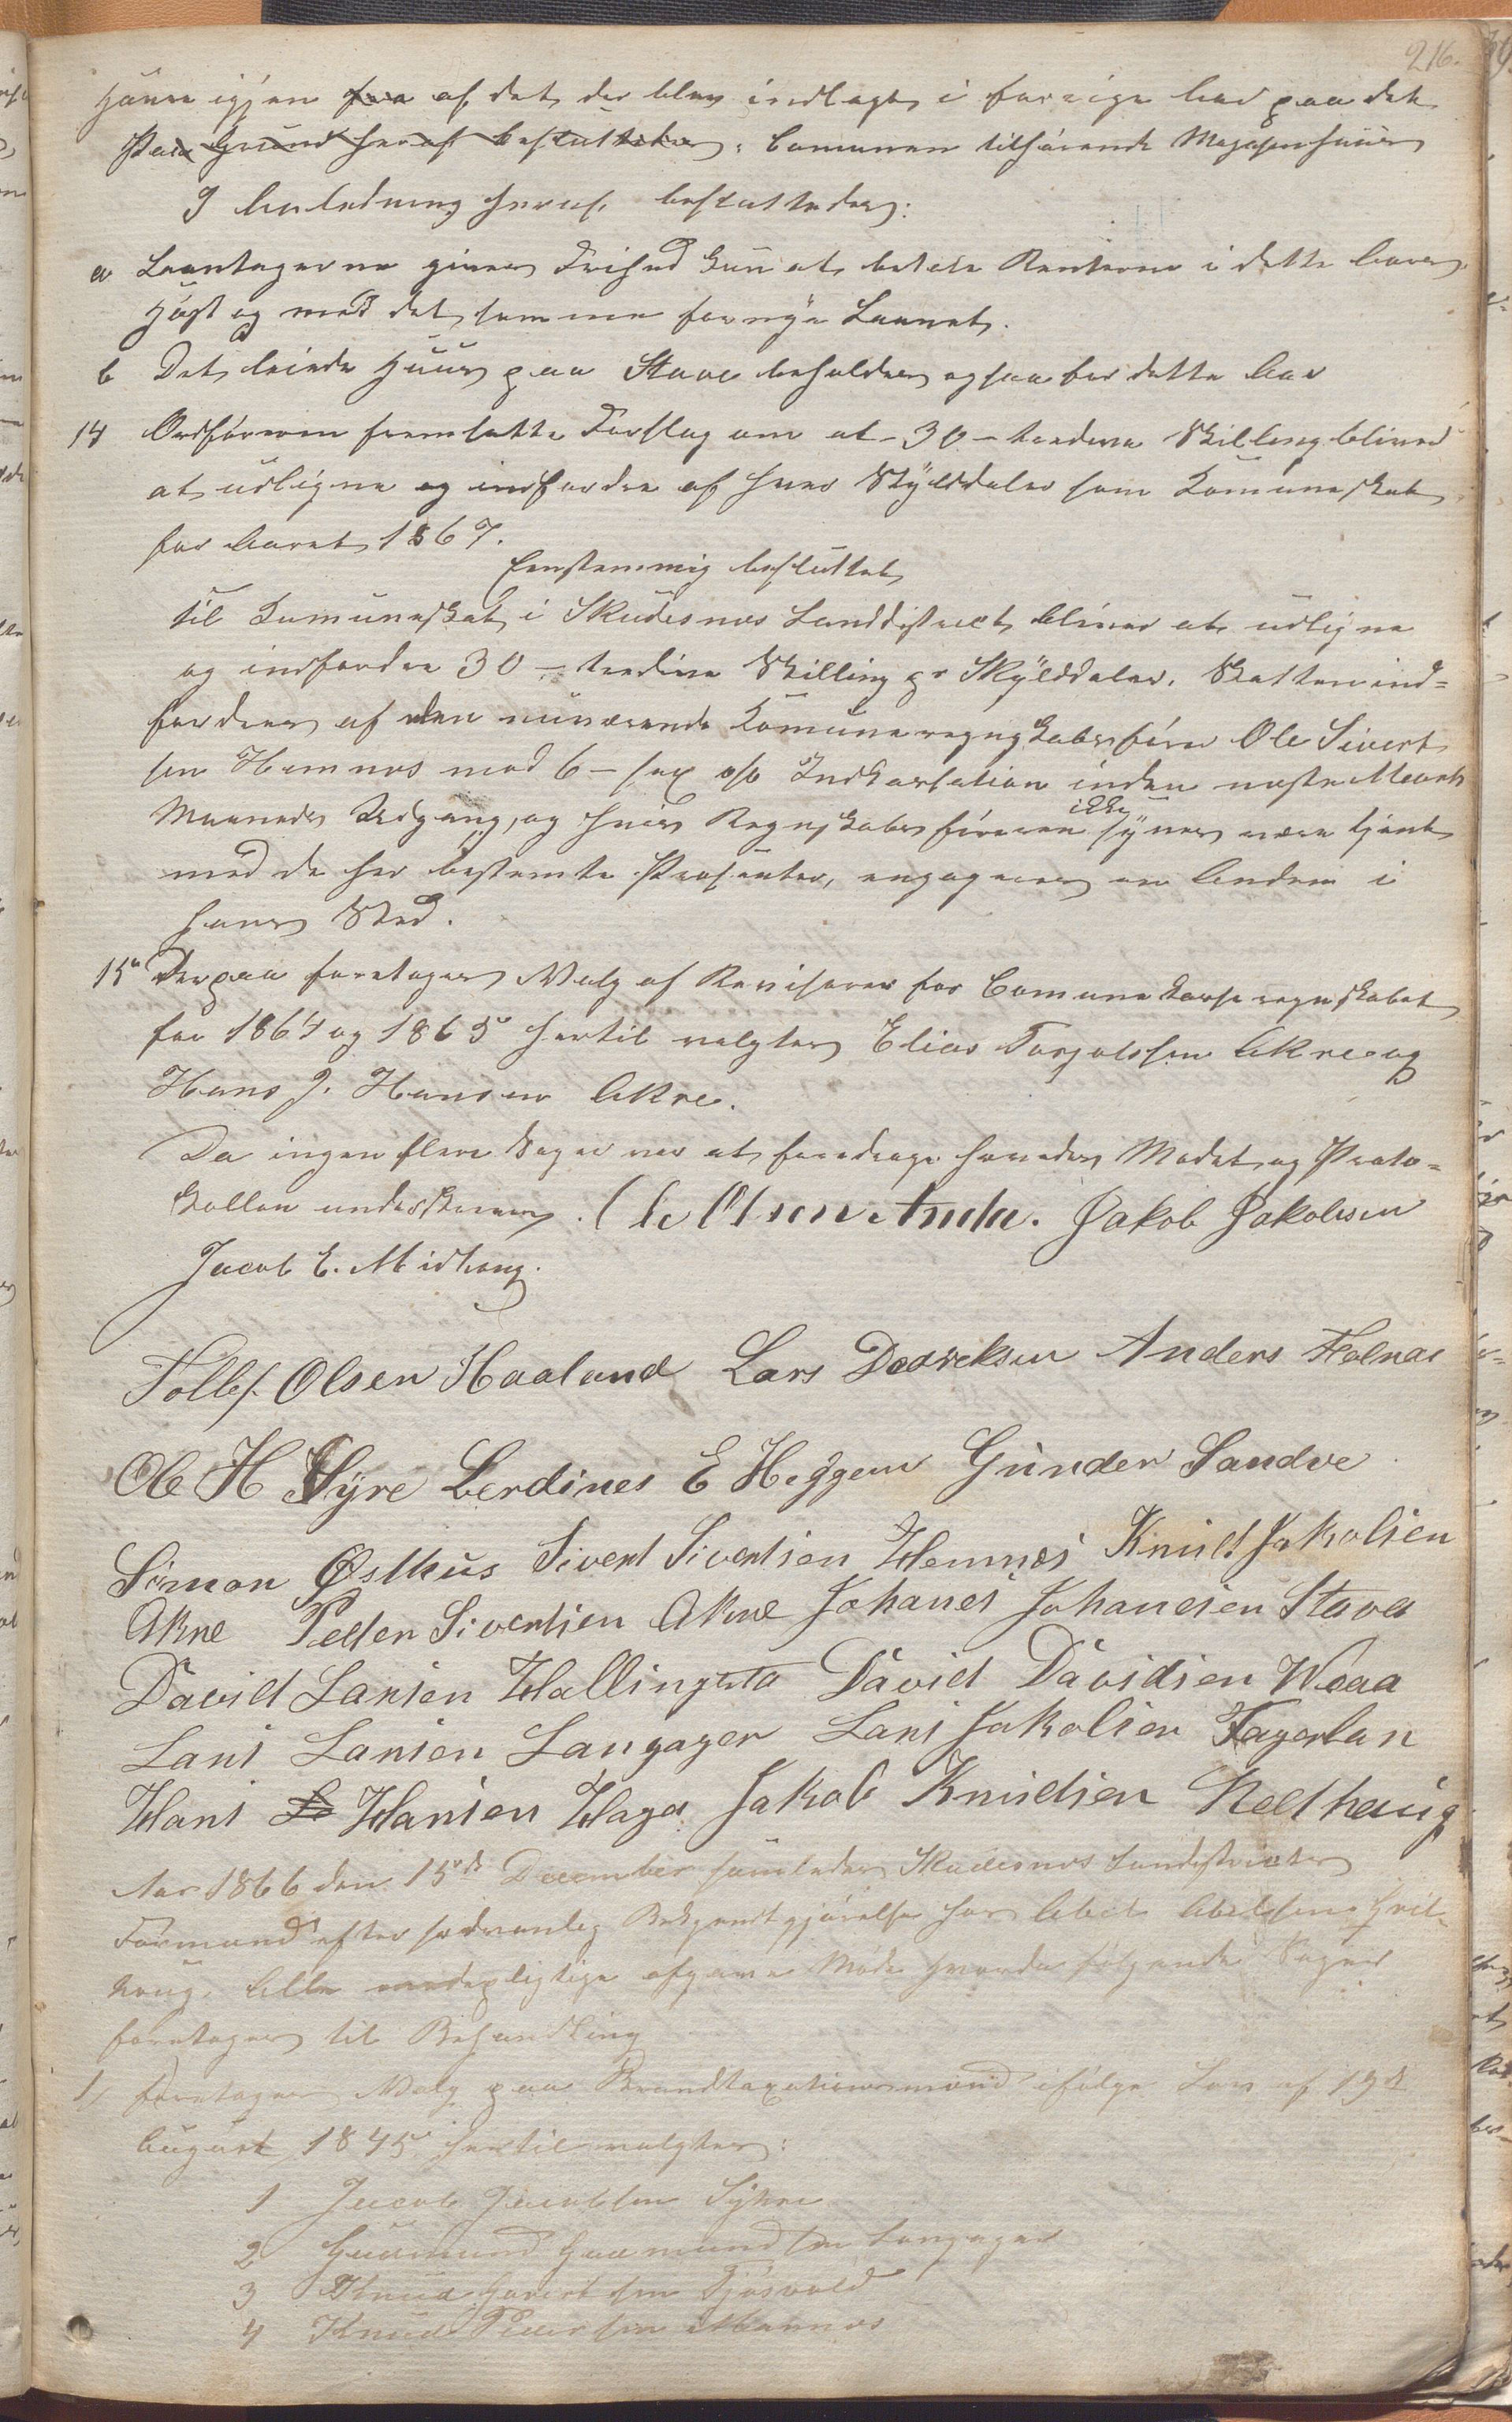 216.
igjen fra af det der blev indlagt i forrige Aar paa det
Paa Grund heraf besluttedes, Comunen tilhørende Magasinhuus
I Anledning heraf besluttedes:
a Laantagerne gives Frihed kun at betale Renterne i dette Aars
Høst og med det samme fornye Laanet.
b Det leiede Huus paa Stave beholdes ogsaa for dette Aar
14 Ordføreren fremsatte Forslag om at - 30 - tredive Skilling bliver
at udligne og indfordre af hver Skylddaler som Komuneskat
for Aaret 1867.
Eenstemmig besluttet
Til Komuneskat i Skudesnes Landdistrict bliver at udligne
og indfordre 30 - tredive Skilling pr Skylddaler. Skatten ind=
fordres af den nuværende Komuneregnskabsfører Ole Sivert
sen Hemnes mod 6 - sex o/o Indkassation inden næste Marts
Maaneds Udgang, og hvis Regnskabsføreren ikke synes være tjent
med de her bestemte Prosenter, engageres en Anden i
hans Sted.
15 Derpaa foretages Valg af Revisorer for Comunekasseregnskabet
for 1864 og 1865 hertil valgtes Elias Torjalssen Akre og
Hans J. Hansen Akre.
Da ingen flere Sager var at foredrage hævedes Mødet og Proto=
kollen underskreves. Ole Olsen Anda. Jakob Jakobsen
Jacob E. Midhaug.
Tollef Olsen Haaland Lars Dedreksen Anders Holnæs
Ole H Syre Berdines E Heggem Gunder Sandve
Simon Østhus Sivert Sivertsen Hemnes Knud Jakobsen
Akre Peder Sivertsen Akre Johanes Johanesen Stava
David Larsen Hallingsta David Davidsen Weaa
Lars Larsen Langager Lars Jakobsen Fagerlan
Hans Le Hansen Haga Jakob Knudsen Medhaug
Aar 1866 den 15de December samledes Skudesnes Landistricts
Formænd efter sædvanlig Bekjendtgjørelse hos Abel Abelsen
haug. Alle mødepligtige afgave Møde hvorda følgende Sager
foretages til Behandling
1, foretages Valg paa Brandtaxationsmænd ifølge Lov af 19de
August 1845 hertil valgtes:
1 Jacob Jacobsen Syre
2 Gudmund Gudmundsen Langager
3 Knud Tjøsvold
4 Knud Pedersen Mannes